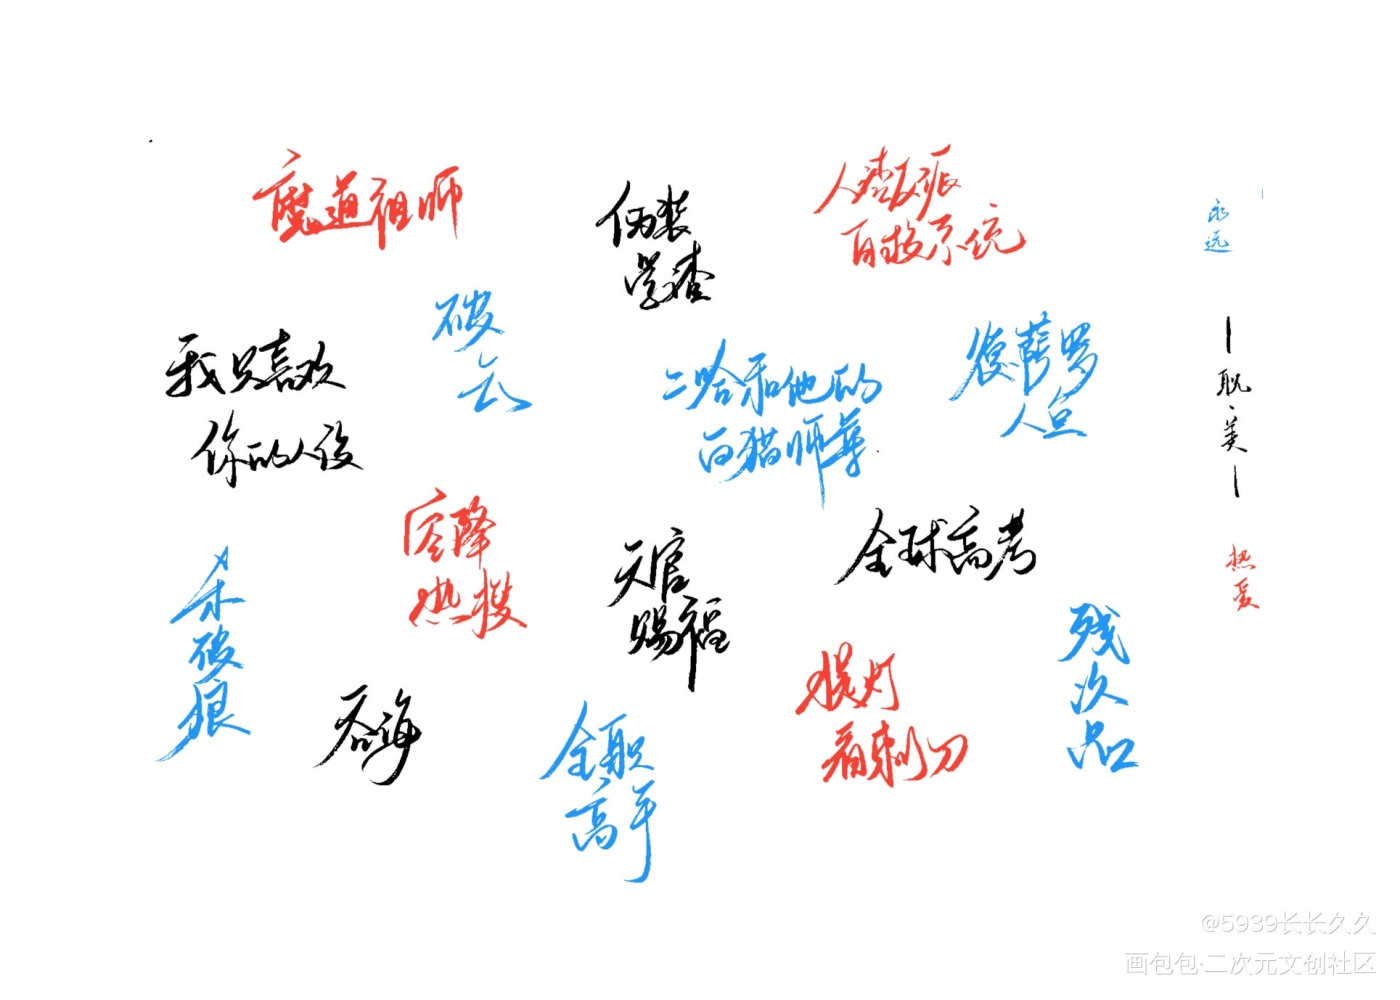 魔道祖师
伪装
学渣
人渣反派
自救系统
永
远
破
云
我只喜欢
你的人设
二哈和他的
白猫师尊
提灯
看刺刀
全球高考
空降
热搜
天官
赐福
杀
破
狼
吞海
全职
高手
残
次
品
耽
美
热
爱
人皇
@5939长长久久
画包包·二次元文创社区